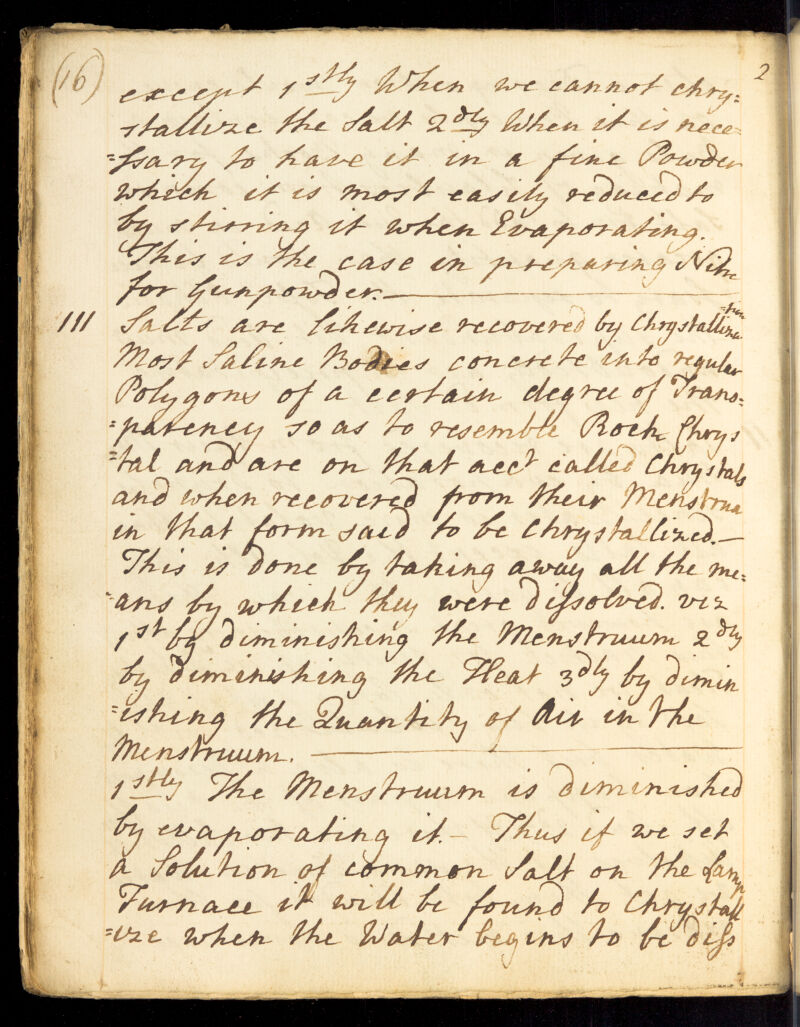 (16)
2
except 1stly When we cannot chry=
stallize the Salt 2dly When it is nece=
=ssary to have it in a fine Powder
which it is most easily reduced to
by stirring it when Evaporating.
This is the case in preparing Nitre
for Gunpowder.
III Salts are likewise recovered by Chrystalliza=tion
Most Saline Bodies concrete into regular
Polygons of a certain degree of Trans=
=parency so as to resemble Rock Chrys
=tal and are on that acct called Chrystals
and when recovered from their Menstrua
in that form said to be Chrystallized.—
This is done by taking away all the me=
=ans by which they were dissolved. viz
1st by diminishing the Menstruum 2dly
by diminishing the Heat 3dly by dimin
=ishing the Quantity of Air in the
Menstruum.
1stly The Menstruum is diminished
by evaporating it.— Thus if we set
a Solution of common Salt on the Lamp
Furnace it will be found to Chrystall
=ize when the Water begins to be diss